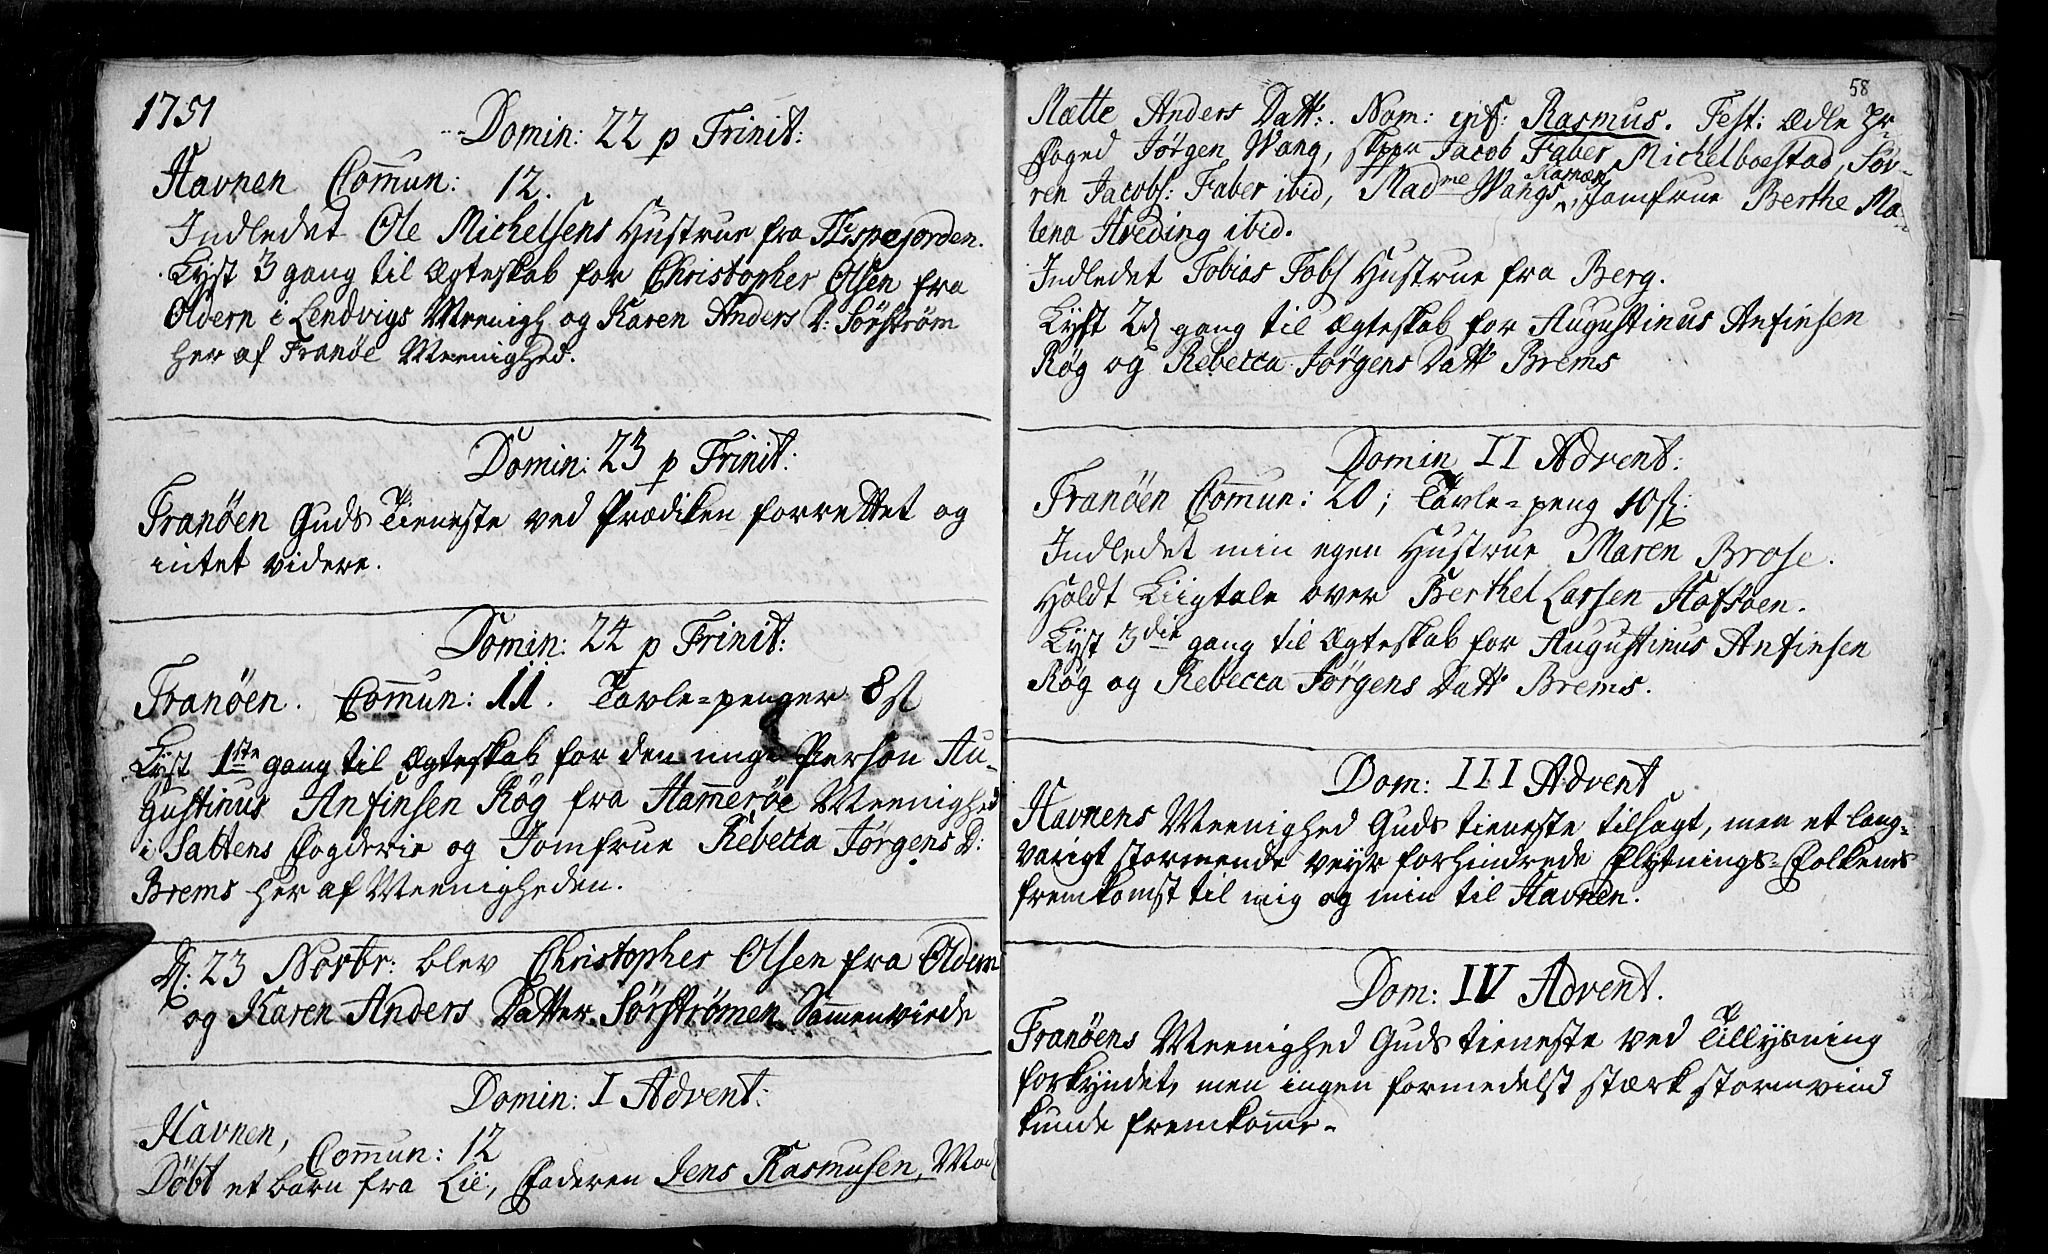 1751
Domin: 22 p Trinit:
Havnen Comun: 12.
Indledet Ole Michelsens Hustrue fra Tespejorden.
Lyst 3 gang til Ægteskab for Christopher Olsen fra
Oldern i Lendvigs Meenigh og Karen Anders D: Sørstrøm
her af Tranøe Meenighed.
Domin: 23 p Trinit:
Tranøen Guds Tieneste ved Prædiken forrettet og
intet videre.
Domin: 24 p Trinit:
Tranøen. Comun: 11. Tavle=penger 8 sk
Lyst 1ste gang til Ægteskab for den unge Person Au-
gustinus Anfinsen Røg fra Hamerøe Meenighed
i Saltens Fogderie og Jomfrue Rebecca Jørgens D:
Brems her af Meenigheden.
D: 23 Novbr: blev Christopher Olsen fra Oldern
og Karen Anders Datter Sørstrømen Sammenviede
Domin: I Advent:
Havnen, Comun: 12
Döbt et barn fra Lie, Faderen Jens Rasmusen, Mod
58
Mætte Anders Datt:. Nom: inf: Rasmus. Test: Ædle Hr
Foged Jørgen Wang, Jacob Faber Michelboestad, Søv-
ren Jacobs: Faber ibid, Madme Wangs, Jomfrue Berthe Ma-
lena Hveding ibid.
Indledet Tobias Tobs Hustrue fra Berg.
Lyst 2d gang til Ægteskab for Augustinus Anfinsen
Røg og Rebecca Jørgens Datt Brems
Domin II Advent:
Tranøen Comun: 20; Tavle=peng 10 sk:
Indledet min egen Hustrue Maren Brose.
Holdt Liigtale over Berthel Larsen Hofsøen.
Lyst 3die gang til Ægteskab for Augustinus Anfinsen
Røg og Rebecca Jørgens Datt Brems.
Dom: III Advent
Havnens Meenighed Guds tieneste tilsagt, men et lang=
varigt stormende veyr forhindrede Flytnings=Folkenes
fremkomst til mig og min til Havnen.
Dom: IV Advent.
Tranøens Meenighed Guds tieneste ved Tillysning
forkyndet, men ingen formedelst stærk stormvind
kunde fremkome.